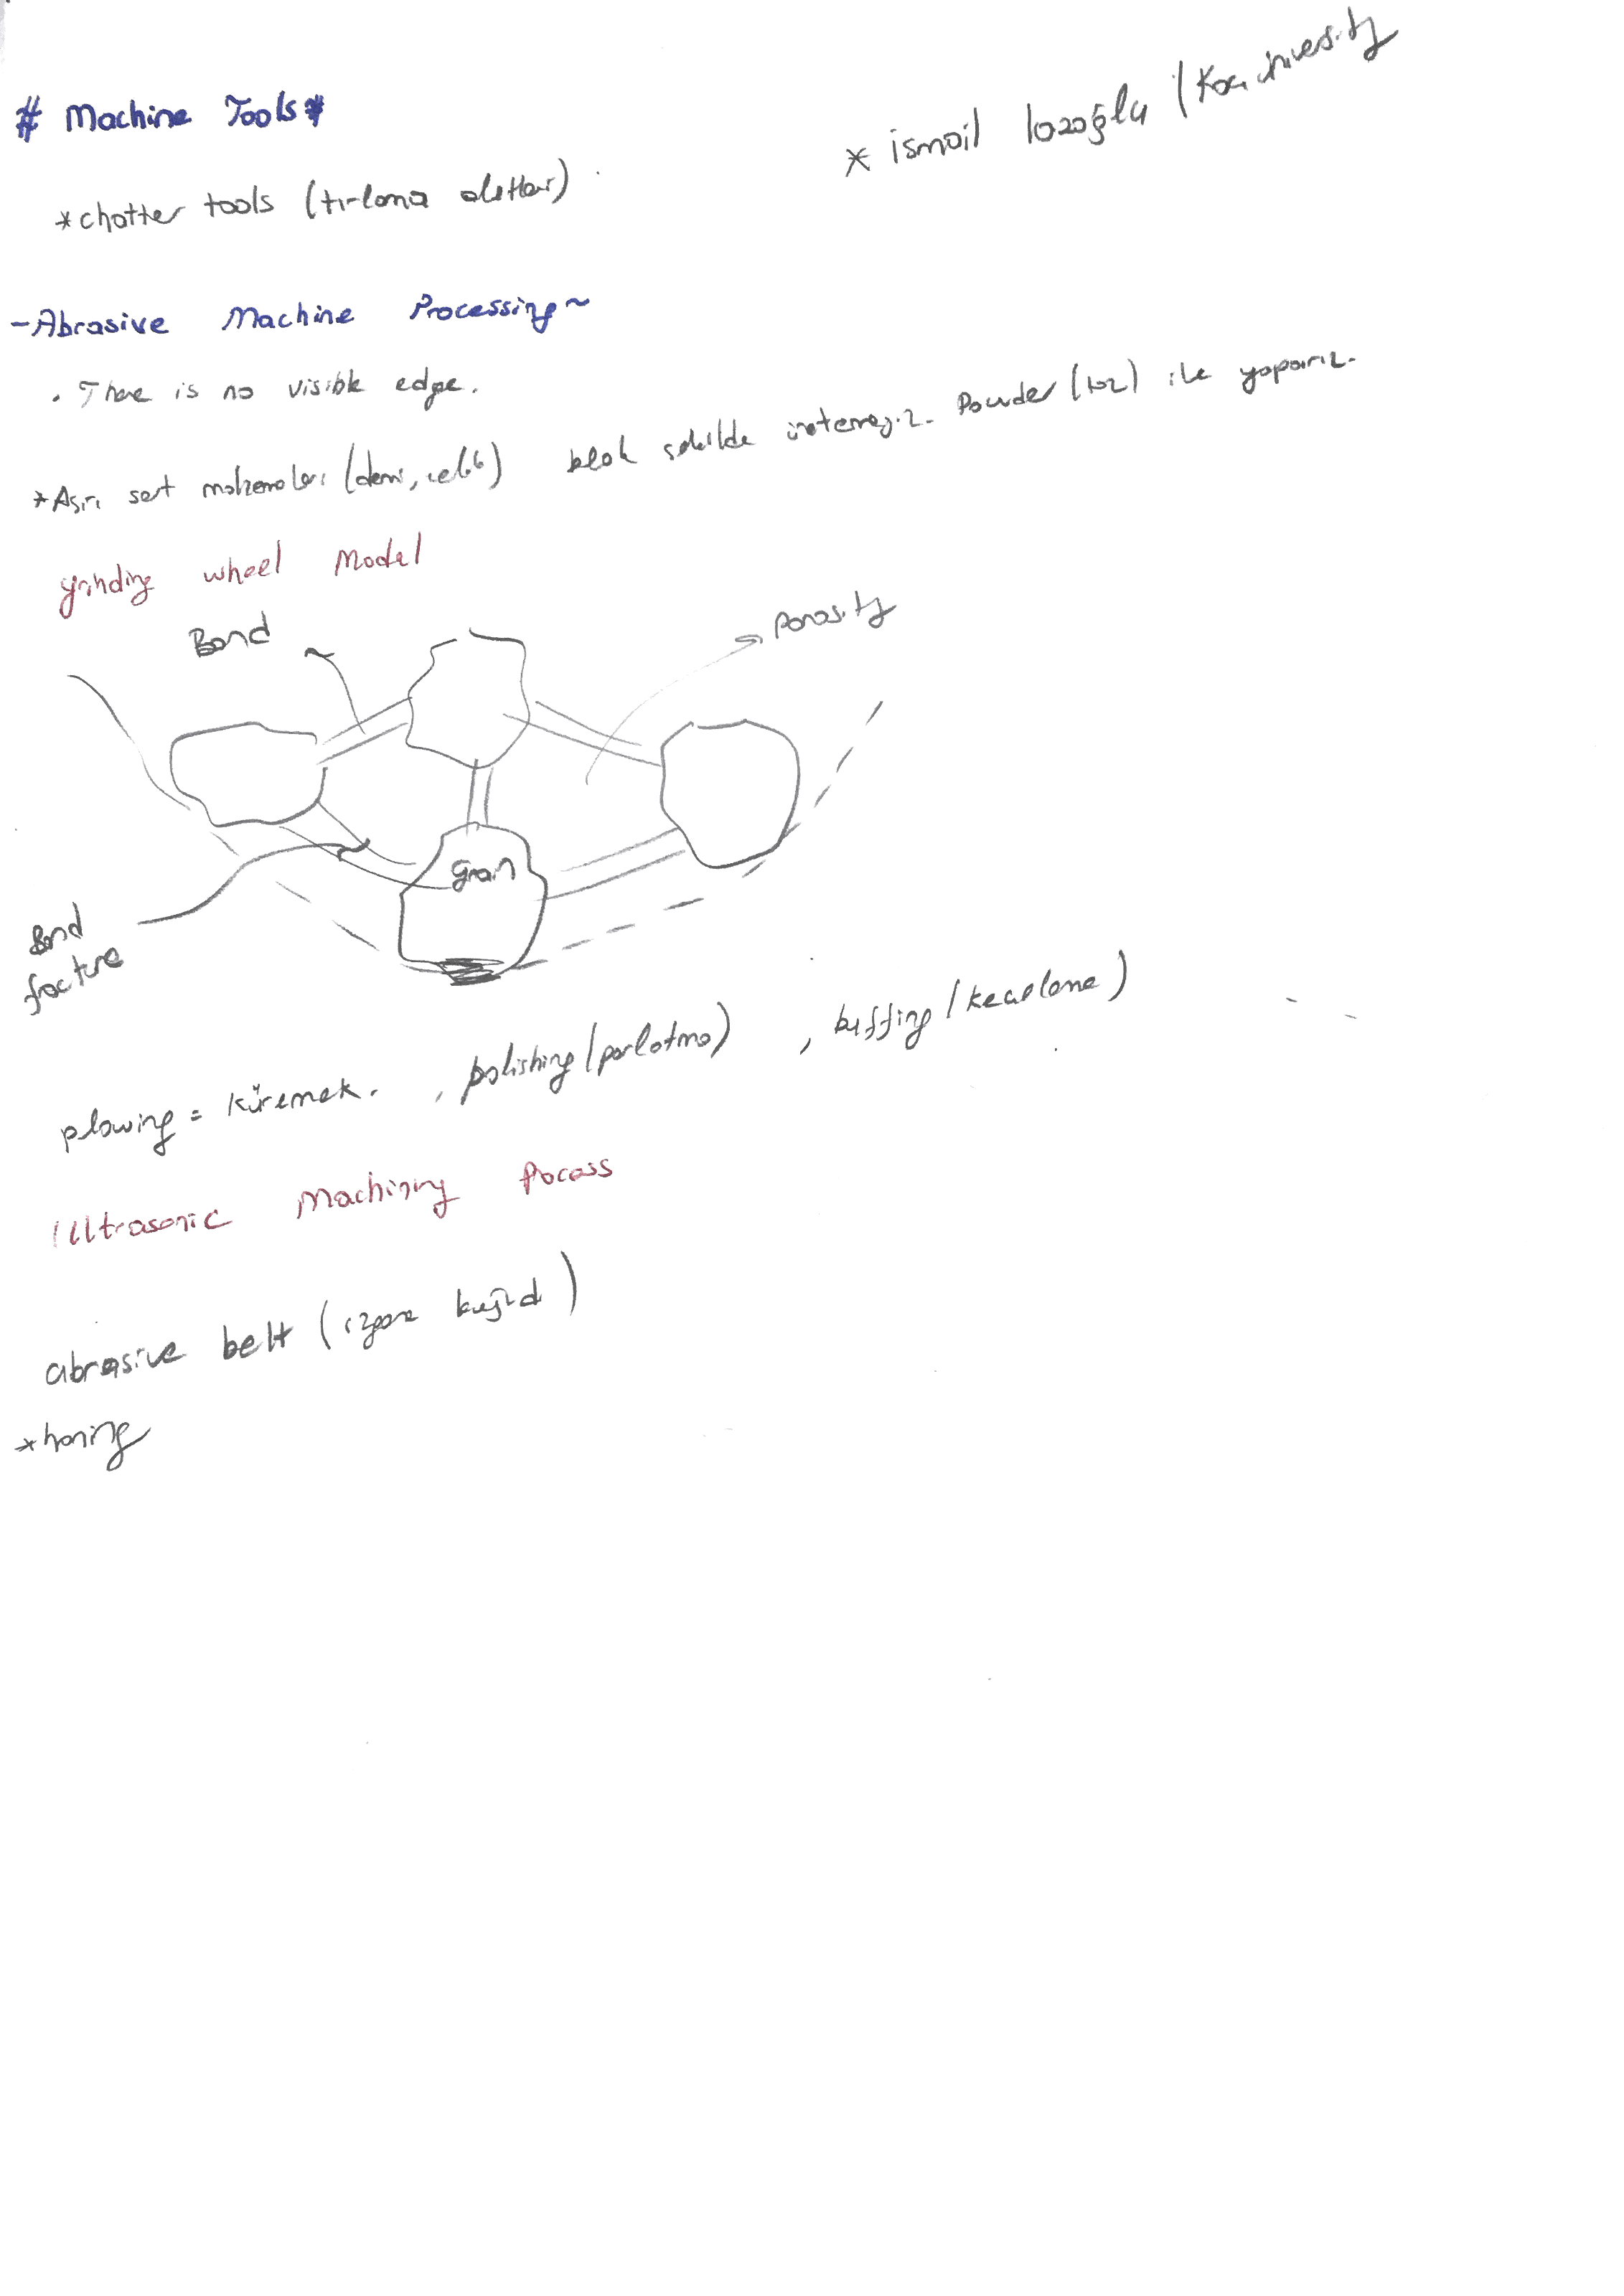 # Machine Tools *
* ismail lazoğlu (Koç University
* chatter tools (tırlama aletleri)
- Abrasive Machine Processing ~
. There is no visible edge.
* Aşırı sert malzemeleri (demir, çelik) blok şekilde üretemeyiz. Powder (toz) ile yaparız.
grinding wheel Model
Bond
Porosity
Grain
Bond
fracture
plowing = küremek. , polishing (parlatma) , buffing (
Ultrasonic Machining Process
abrasive belt (zımpara kağıdı)
* honing